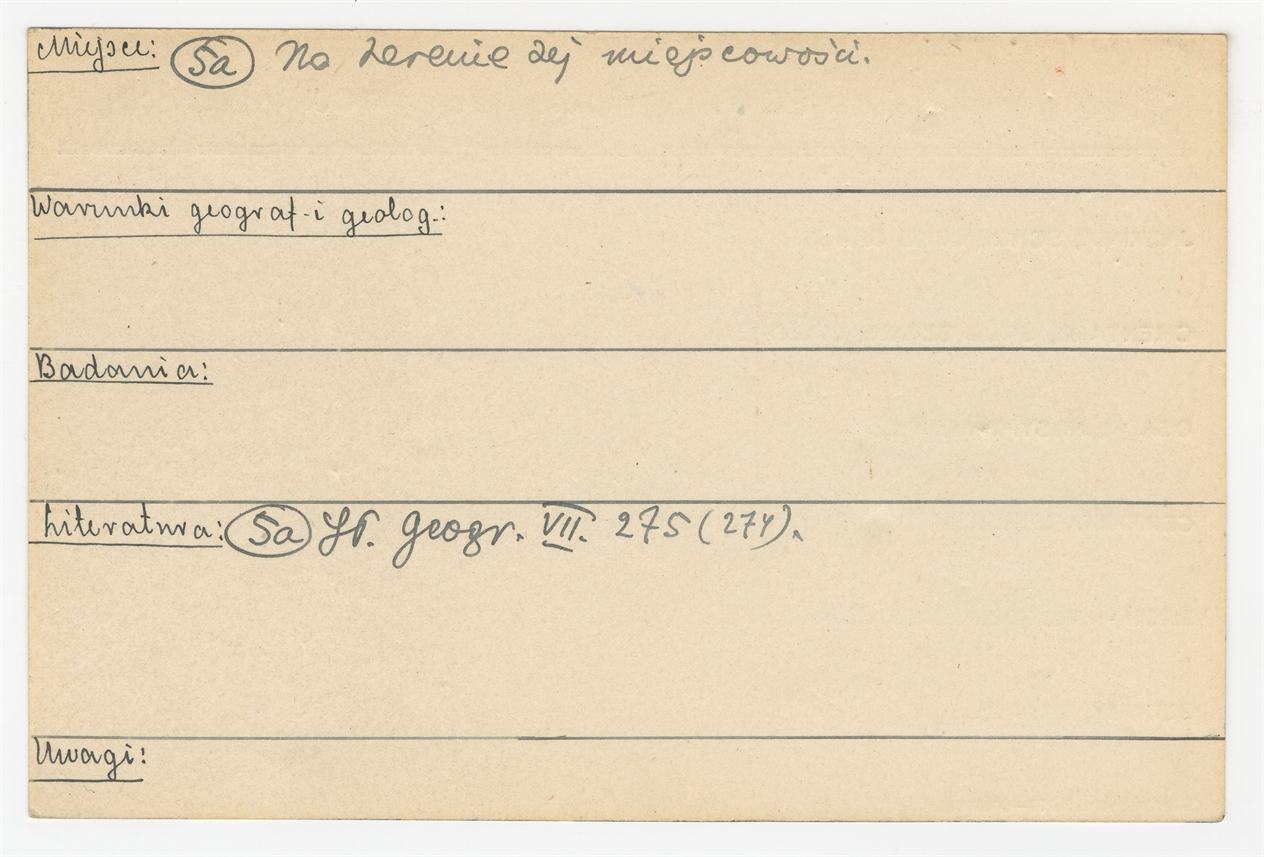 Miejsce: 5a Na terenie tej miejscowości.
Warunki geograf. i geolog.:
Badania:
Literatura: 5a Sł. Geogr. VII. 275 (274).
Uwagi: